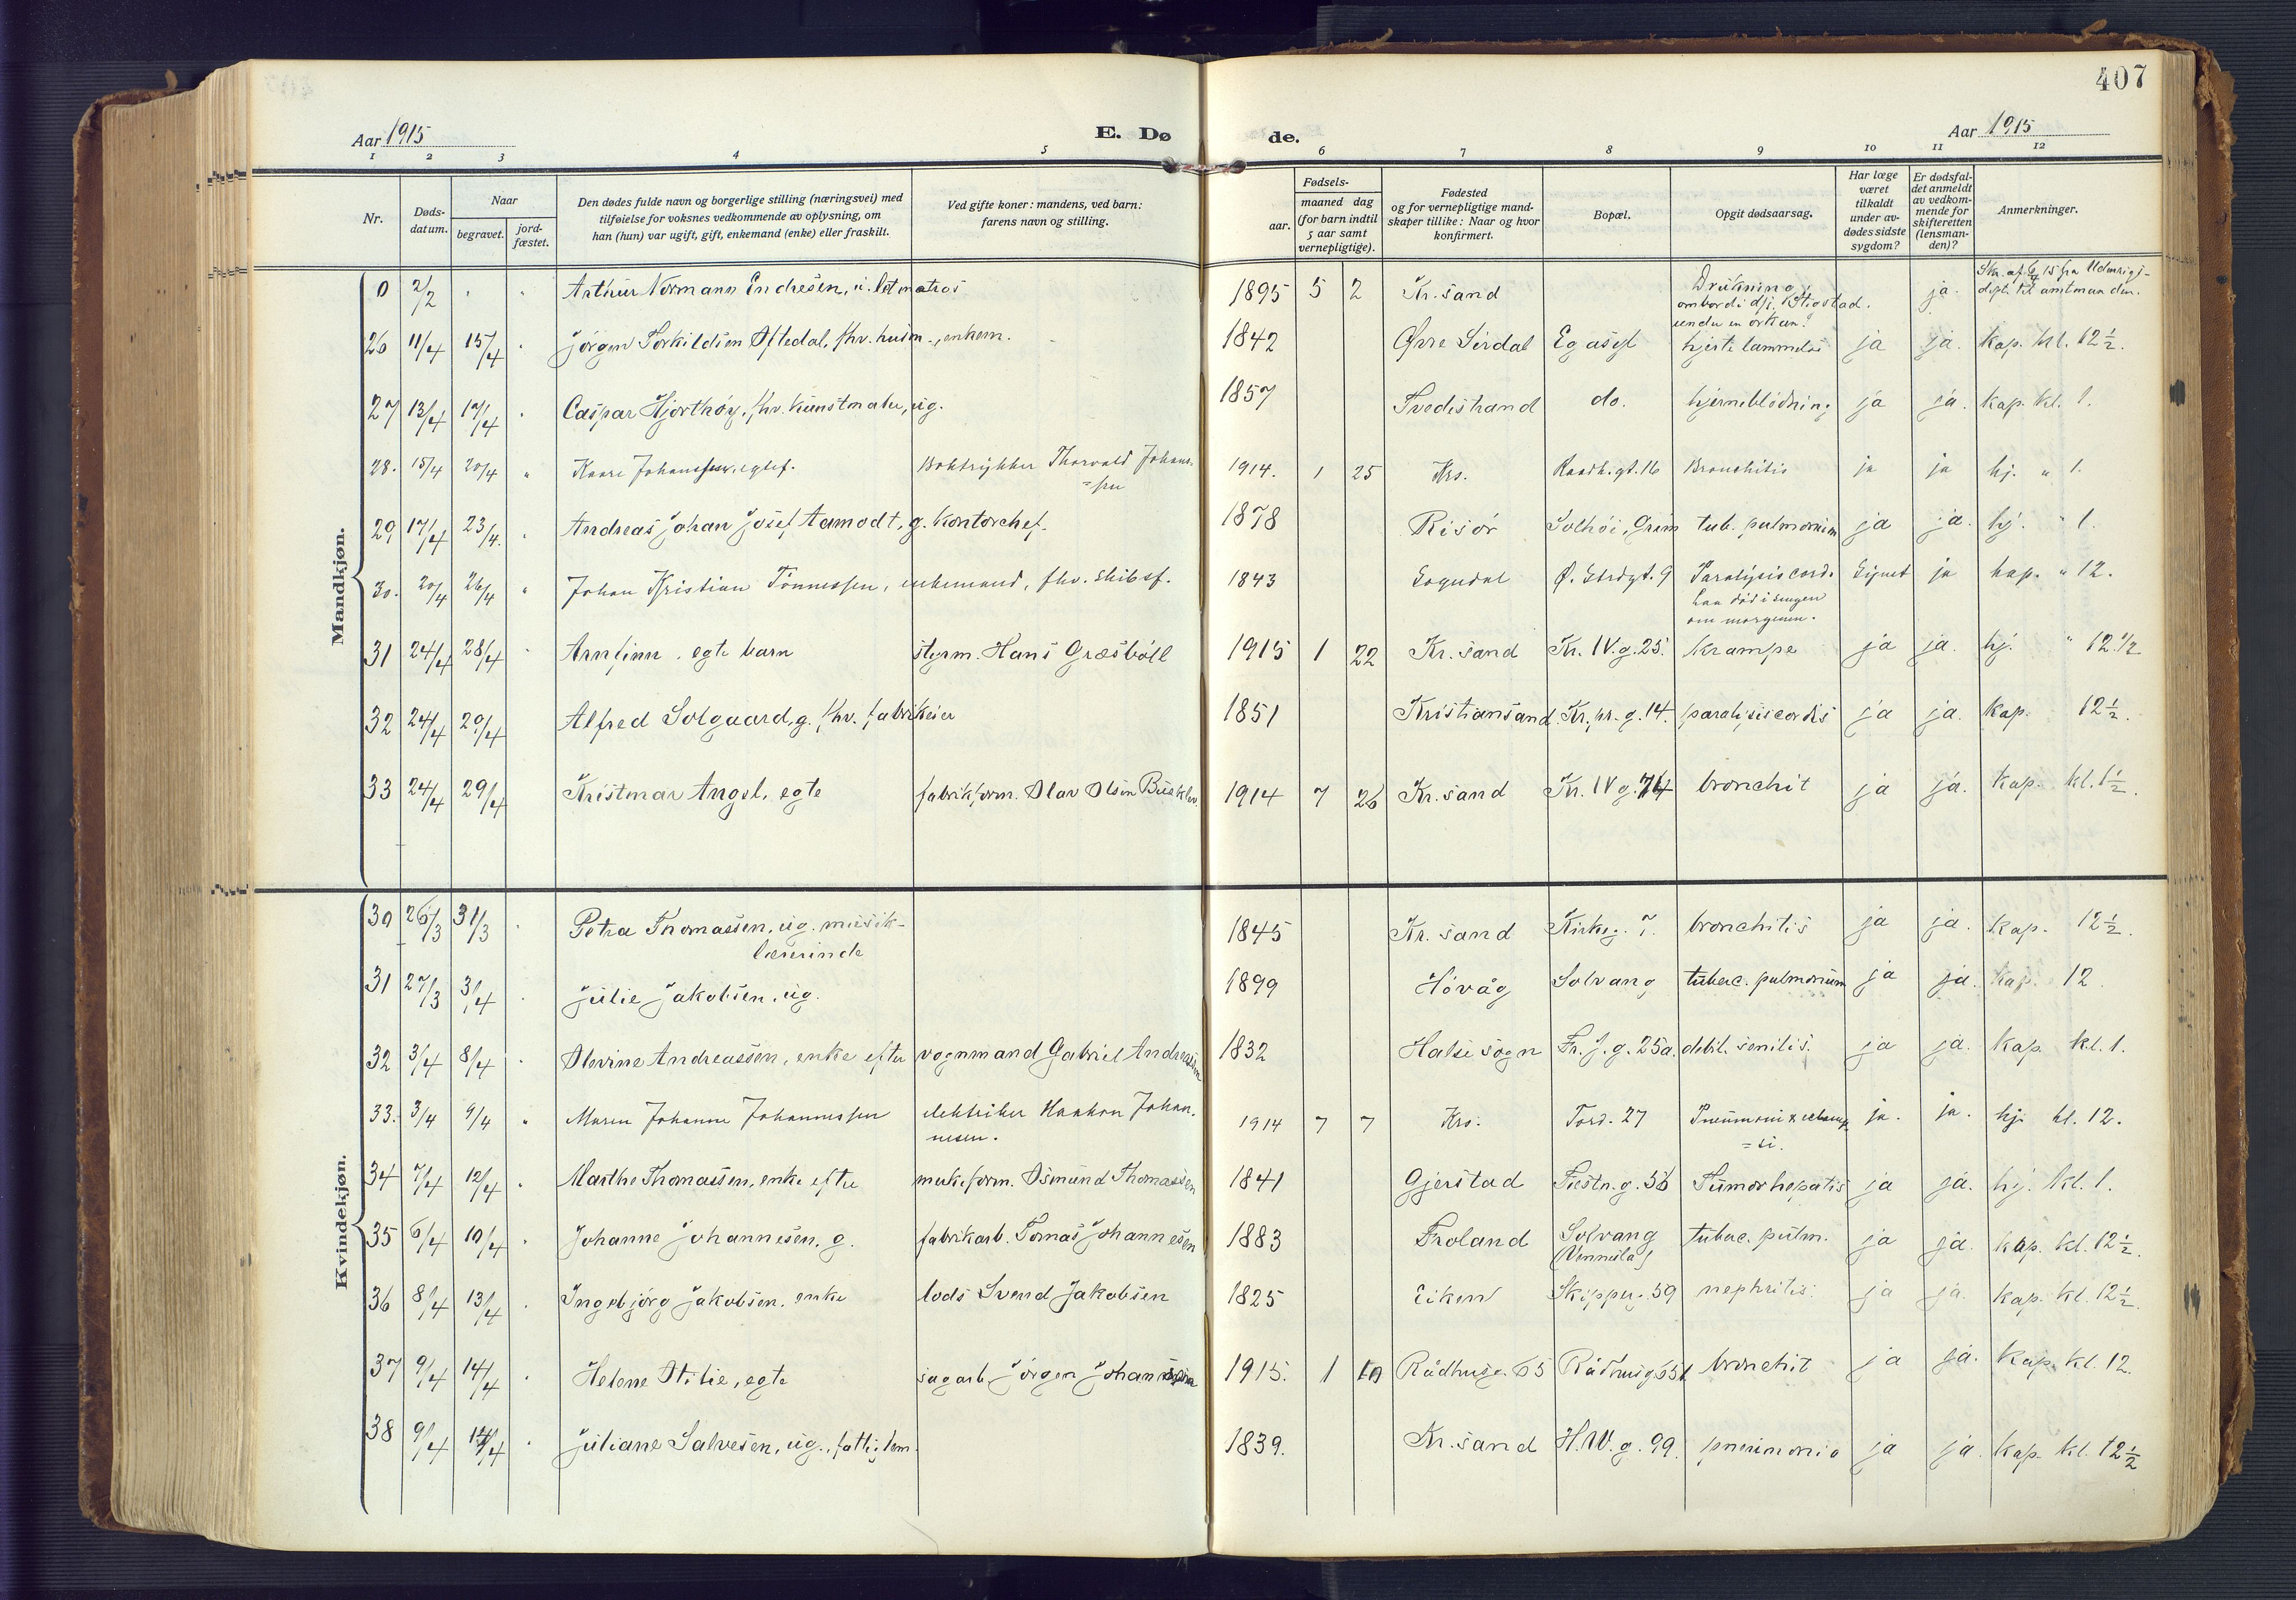 407
Aar 1915 E. Dø de. Aar 1915
1 2 3 4 5 6 7 8 9 10 11 12
Nr.
Døds-
datum.
Naar
begravet.
jord-
fæstet.
Den dødes fulde navn og borgerlige stilling (næringsvei) med
tilføielse for voksnes vedkommende av oplysning, om
han (hun) var ugift, gift, enkemand (enke) eller fraskilt.
Ved gifte koner: mandens, ved barn:
farens navn og stilling.
Fødsels-
aar.
maaned dag
(for barn indtil
5 aar samt
vernepligtige).
Fødested
og for vernepligtige mand-
skaper tillike: Naar og hvor
konfirmert.
Bopæl.
Opgit dødsaarsag.
Har læge
været
tilkaldt
under av-
dødes sidste
sygdom?
Er dødsfal-
det anmeldt
av vedkom-
mende for
skifteretten
(lensman-
den)?
Anmerkninger.
Mandkjøn.
0 2/2 Arthur Normann Endresen, u. letmatros 1895 5 2 Kr.sand Drukning ja.
ombord i d/s.
under en orkan. til amtmanden.
26 11/4 15/4 Jørgen Torkildsen Oftedal, fhv. husm., enkem. 1842 Øvre Sirdal Egasyl hjertelammelse ja ja. kap. kl. 12 1/2.
27 13/4 17/4 Caspar Hjorthøy, fhv. kunstmaler, ug. 1857 Tvedestrand do. hjerneblödning ja ja. kap. kl. 1.
28. 15/4 20/4 " Kaare Johanssen, egtef. Boktrykker Thorvald Johans-
=sen 1914. 1 25 Krs. Raadh.gt. 16 Bronchitis ja ja hj. " 1.
29 17/4 23/4. Andreas Johan Josef Aamodt, g. kontorchef. 1878 Risör Solhöi, Grim tub. pulmonum ja ja. hj. " 1.
30. 20/4 26/4 " Johan Kristian Tönnessen, enkemand, fhv. skibsf. 1843 Sogndal Ø. Strdgt. 9 Paralysis cord. ja kap. " 12.
laa död i sengen
om morgenen.
31 24/4 28/4 Arnfinn, egte barn styrm. Hans Græsböll 1915 1 22 Kr.sand Kr. IV. g. 25. krampe ja ja. hj. " 12.1/2
32 24/4 Alfred Solgaard, g. fhv. fabrikeier 1851 Kristiansand Kr. pr. g. 14. paralysis cordis ja ja. kap. 12 1/2.
33 24/4 29/4 Kristmar Angel, egte fabrikform. Olav Olsen 1914 7 26 Kr.sand Kr. IV g. 74 bronchit ja ja. kap. kl. 1 1/2.
Kvindekjøn.
30 26/3 31/3 Petra Thomassen, ug. musik-
lærerinde 1845 Kr. sand Kirkeg. 7. bronchitis ja ja. kap. 12 1/2.
31 27/3 3/4 Julie Jakobsen, ug. 1899 Hövåg Solvang tuberc. pulmonum ja ja. kap. 12
32 3/4 8/4 Olevine Andreassen, enke efter vognmand Gabriel Andreassen 1832 Halse sogn Fr. J. g. 25a. debil. senilis. ja ja. kap. kl. 1.
33. 3/4 9/4 " Maren Johanne Johannessen elektriker Haakon Johan-
nesen. 1914 7 7 Krs. Tord. 27 Pneumoni & eclamp
=si. ja. ja. hj. kl. 12.
34 7/4 12/4 Marthe Thomassen, enke efter Osmund Thomassen 1841 Gjerstad Festn. g. 56 Tumor hepatis ja ja. hj. kl. 1.
35 6/4 10/4 Johanne Johannesen, g. fabrikarb. Tomas Johannesen 1883 Froland Solvang
(Vennesla) tuberc. pulm. ja ja. kap. kl. 12 1/2.
36 8/4 13/4 Ingebjörg Jakobsen, enke lods Svend Jakobsen 1825 Eiken Skipperg. 59 nephritis. ja ja. kap. kl. 12 1/2.
37 9/4 14/4 Helene Otilie, egte sagarb. Jörgen Johannessen 1915. 1 10 Rådhusg. 65 Rådhusg. 65 bronchit ja ja. kap. kl. 12.
38 9/4 14/4 Juliane Salvesen, ug., fattiglem. 1839. Kr.sand H.W.g. 99. pneumonia ja ja. kap. kl. 12 1/2